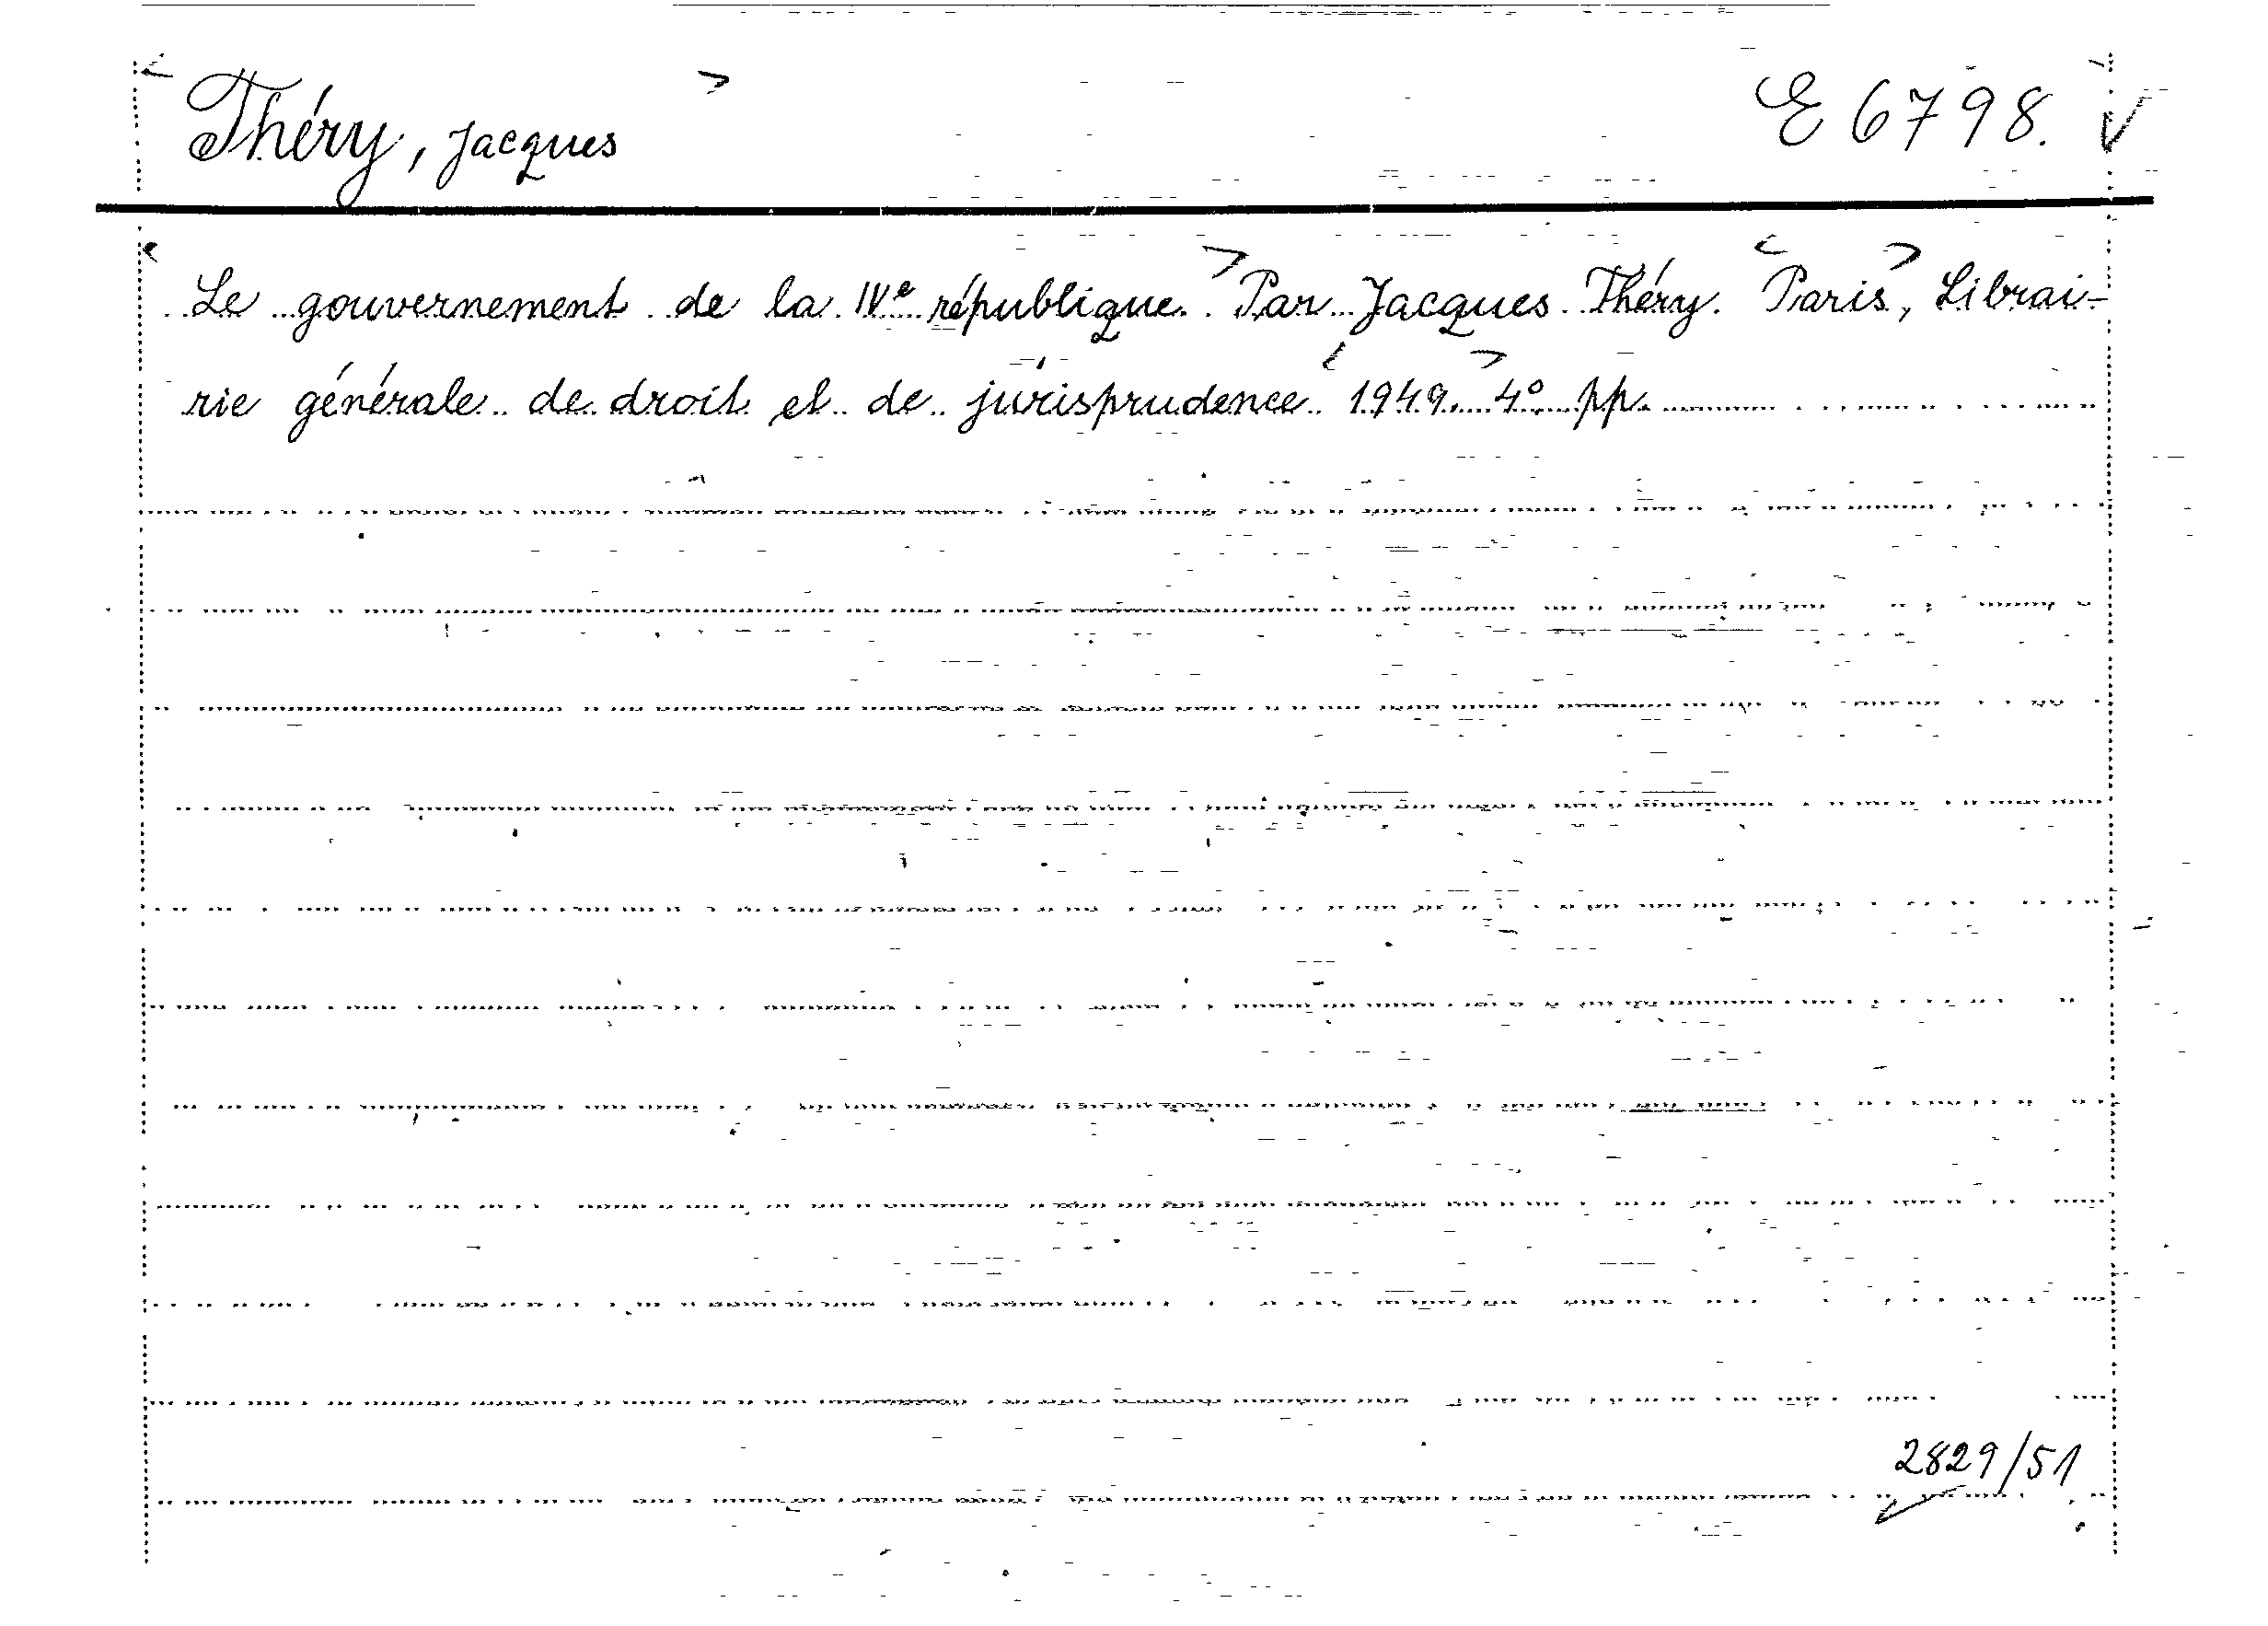 Théry, Jacques E 6798. V
Le gouvernement de la IVe république. Par Jacques Théry. Paris, Librai-
rie générale de droit et de jurisprudence 1949. 4° pp.
2829/51